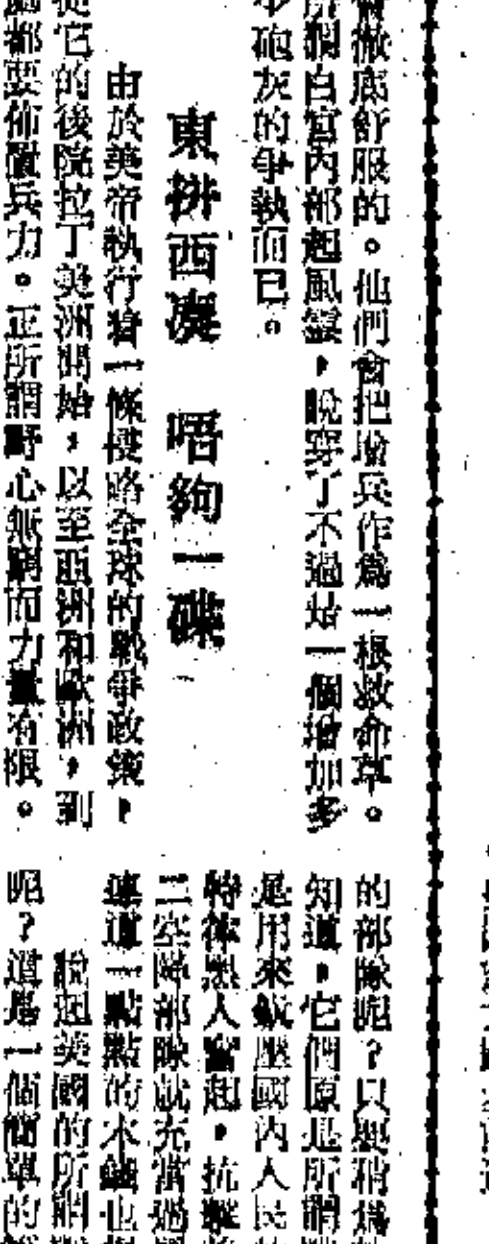 會徹底舒服的。他們會把增兵作為一根救命草。
所謂白宮內部起風雲，說穿了不過是一個增加多
少砲灰的爭執而已。
東拼西湊　唔夠一碟
由於美帝執行着一條侵略全球的戰爭政策，
從它的後院拉丁美洲開始，以至亞洲和歐洲，到
處都要佈置兵力。正所謂野心無窮而力量有限。
的部隊呢？只要稍為
知道，它們原是所謂
是用來鎮壓國內人民
特律黑人奮起，抗擊
二空降部隊就充當過
連這一點點的本錢也
說起美國的所謂
呢？這是一個簡單的